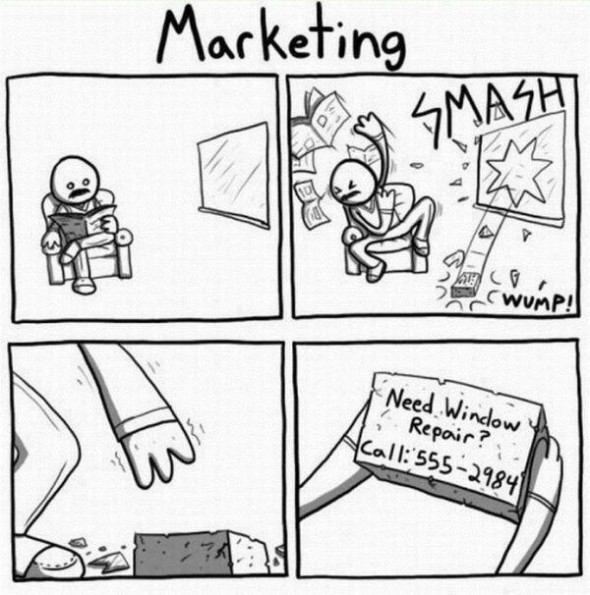 Marketing
SMASH
WUMP!
Need Window
Repair?
Call: 555-2984